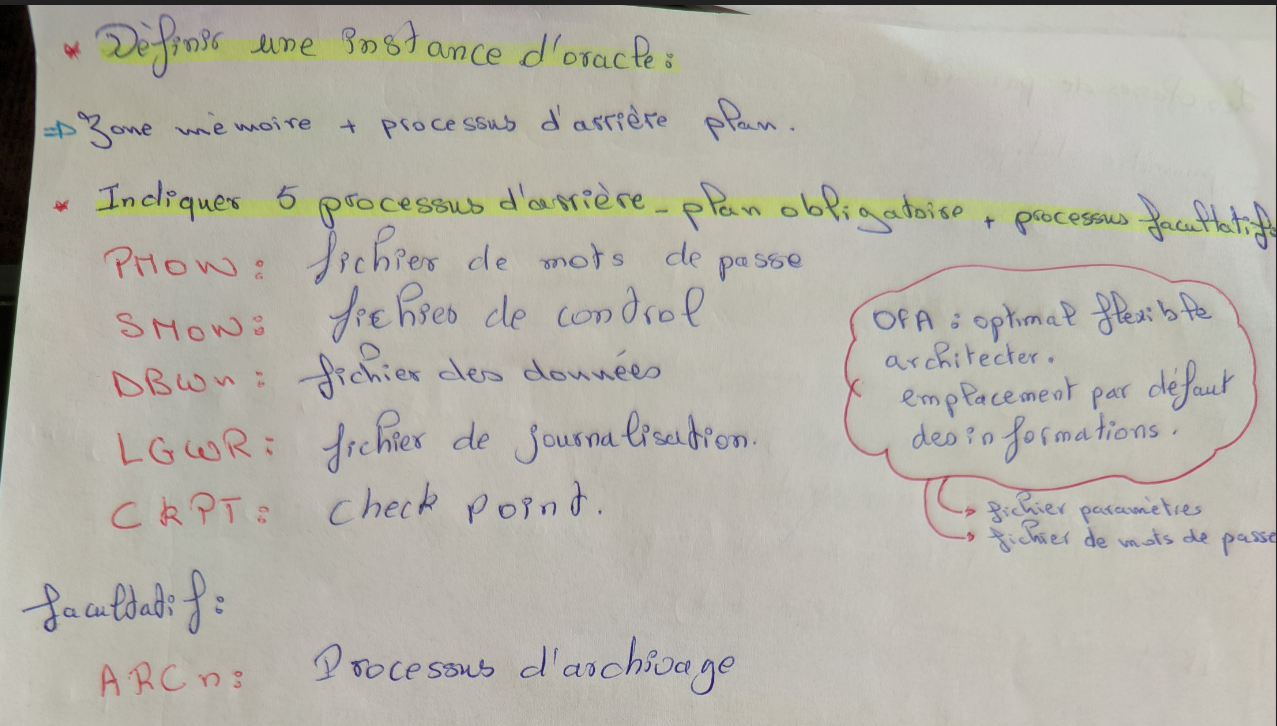 * Définir une instance d'oracle :
⇒ Zone mémoire + processus d'arrière plan.
* Indiquer 5 processus d'arrière-plan obligatoire + processus facultatifs
PMON : fichier de mots de passe
SMON : fichier de control
DBWn : fichier des données
LGWR : fichier de journalisation.
CKPT : check point.
OFA : optimal flexible
architecter.
emplacement par défaut
des informations.
→ fichier paramètres
→ fichier de mots de passe
facultatif :
ARCn : Processus d'archivage